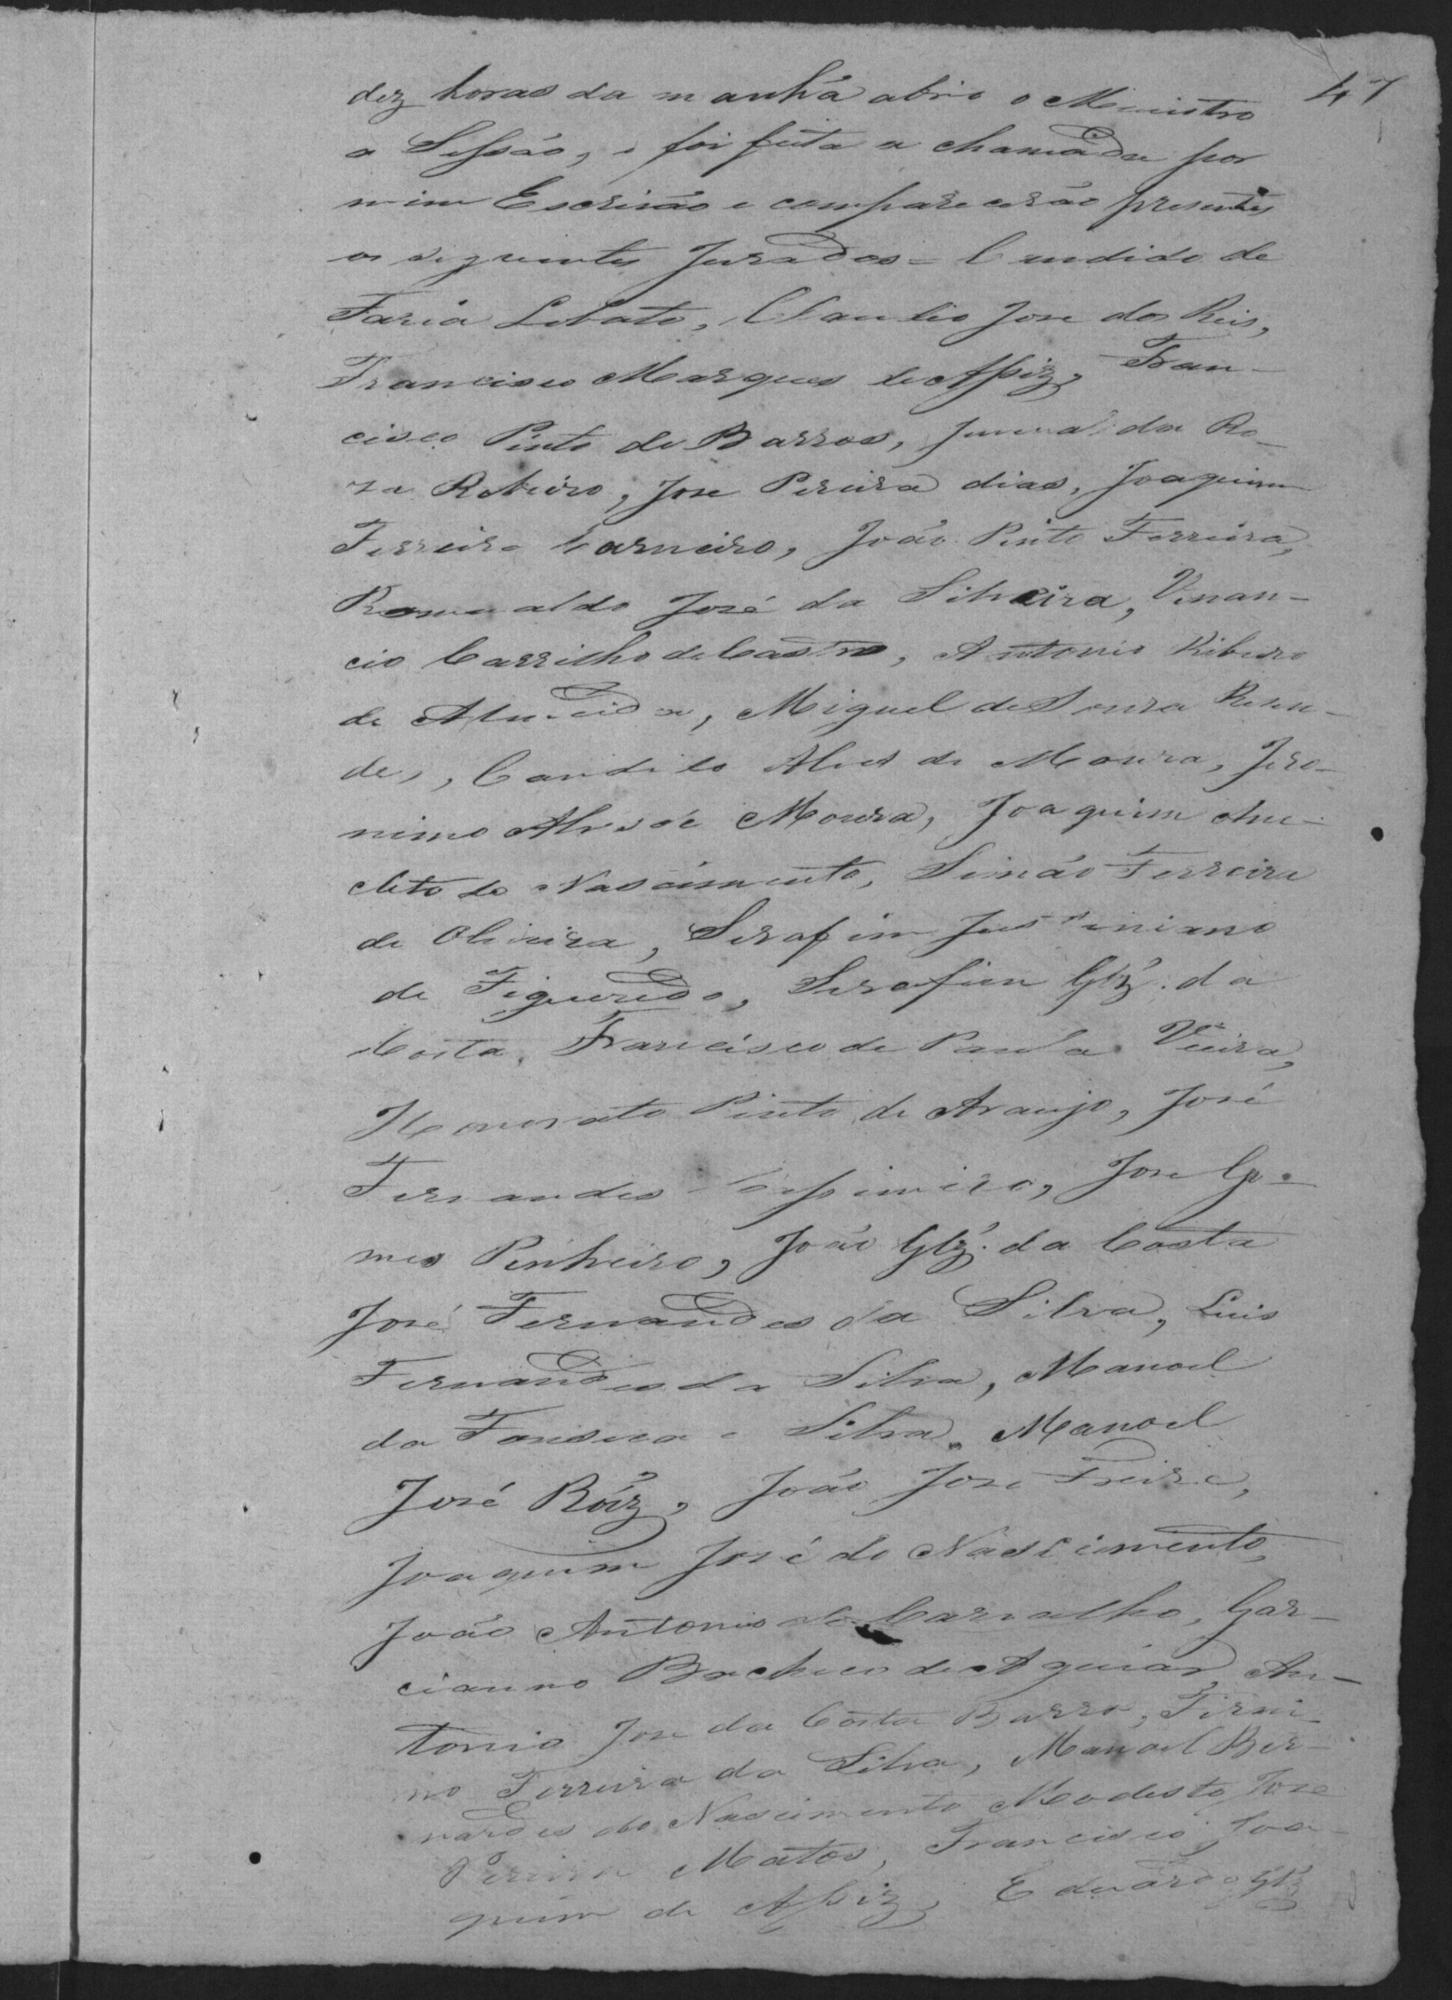 47
dez horas da manhã abrio o Ministro
a Sessão, e foi feita a chamada por
mim Escrivão e comparecerão presentes
os seguintes Jurados = Candido de
Faria Lobato, Claudio Jose dos Reis,
Francisco Marques de Assiz, Fran-
cisco Pinto de Barros, Juvenal da Ro-
za Ribeiro, Jose Pereira dias, Joaquim
Ferreira Carneiro, João Pinto Ferreira,
Romualdo José da Silveira, Venan-
cio Carrilho de Castro, Antonio Ribeiro
de Almeida, Miguel de Souza Resen-
des, Candido Alves de Moura, Jero-
nimo Alves de Moura, Joaquim Ana-
cleto do Nascimento, Simão Ferreira
de Oliveira, Serafim Justiniano
de Figueredo, Serafim Glz. da
Costa, Francisco de Paula Vieira,
Honorato Pinto de Araujo, José
Fernandes, Jose Go-
mes Pinheiro, João Glz. da Costa
José Fernandes da Silva, Luis
Fernandes da Silva, Manoel
da Fonseca e Silva, Manoel
José Roiz, João Jose Freire,
Joaquim José do Nascimento,
João Antonio de Carvalho, Gar-
cianno Pacheco de Aguiar An-
tonio Jose da Costa Barros, Firmi-
no Ferreira da Silva, Manoel Ber-
nardes do Nascimento Modesto Jose
Pereira Matos, Francisco Joa-
quim de Assiz, Eduardo Glz